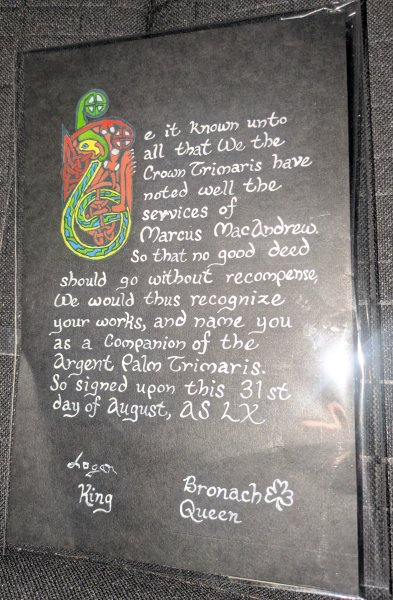 Be it known unto
all that We the
Crown Trimaris have
noted well the
services of
Marcus MacAndrew.
So that no good deed
should go without recompense,
We would thus recognize
your works, and name you
as a Companion of the
Argent Palm Trimaris.
So signed upon this 31st
day of August, AS LX
Logan
King
Bronach
Queen